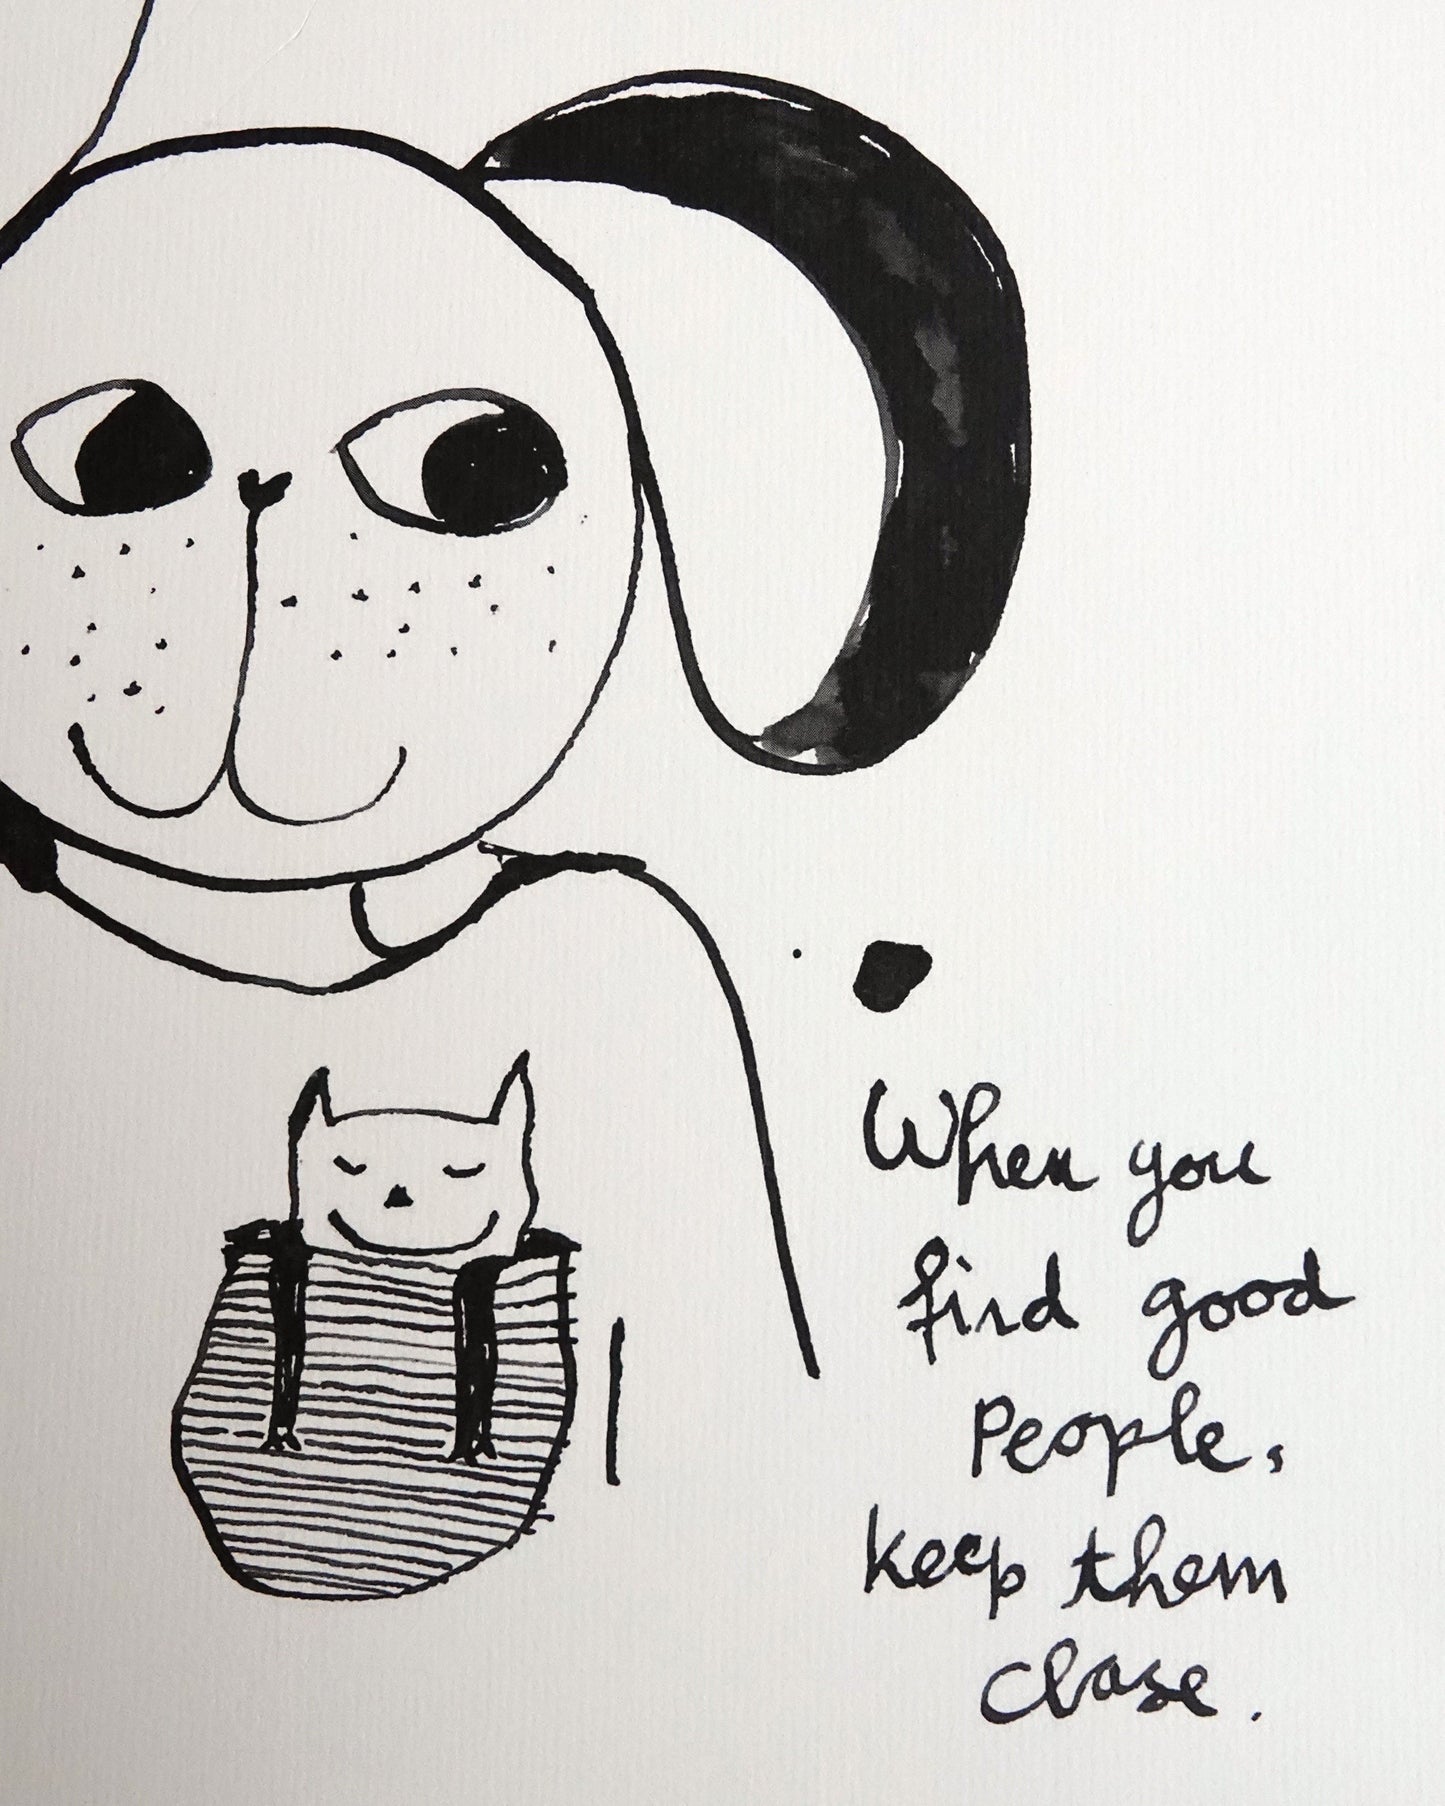 When you
find good
People,
keep them
close.